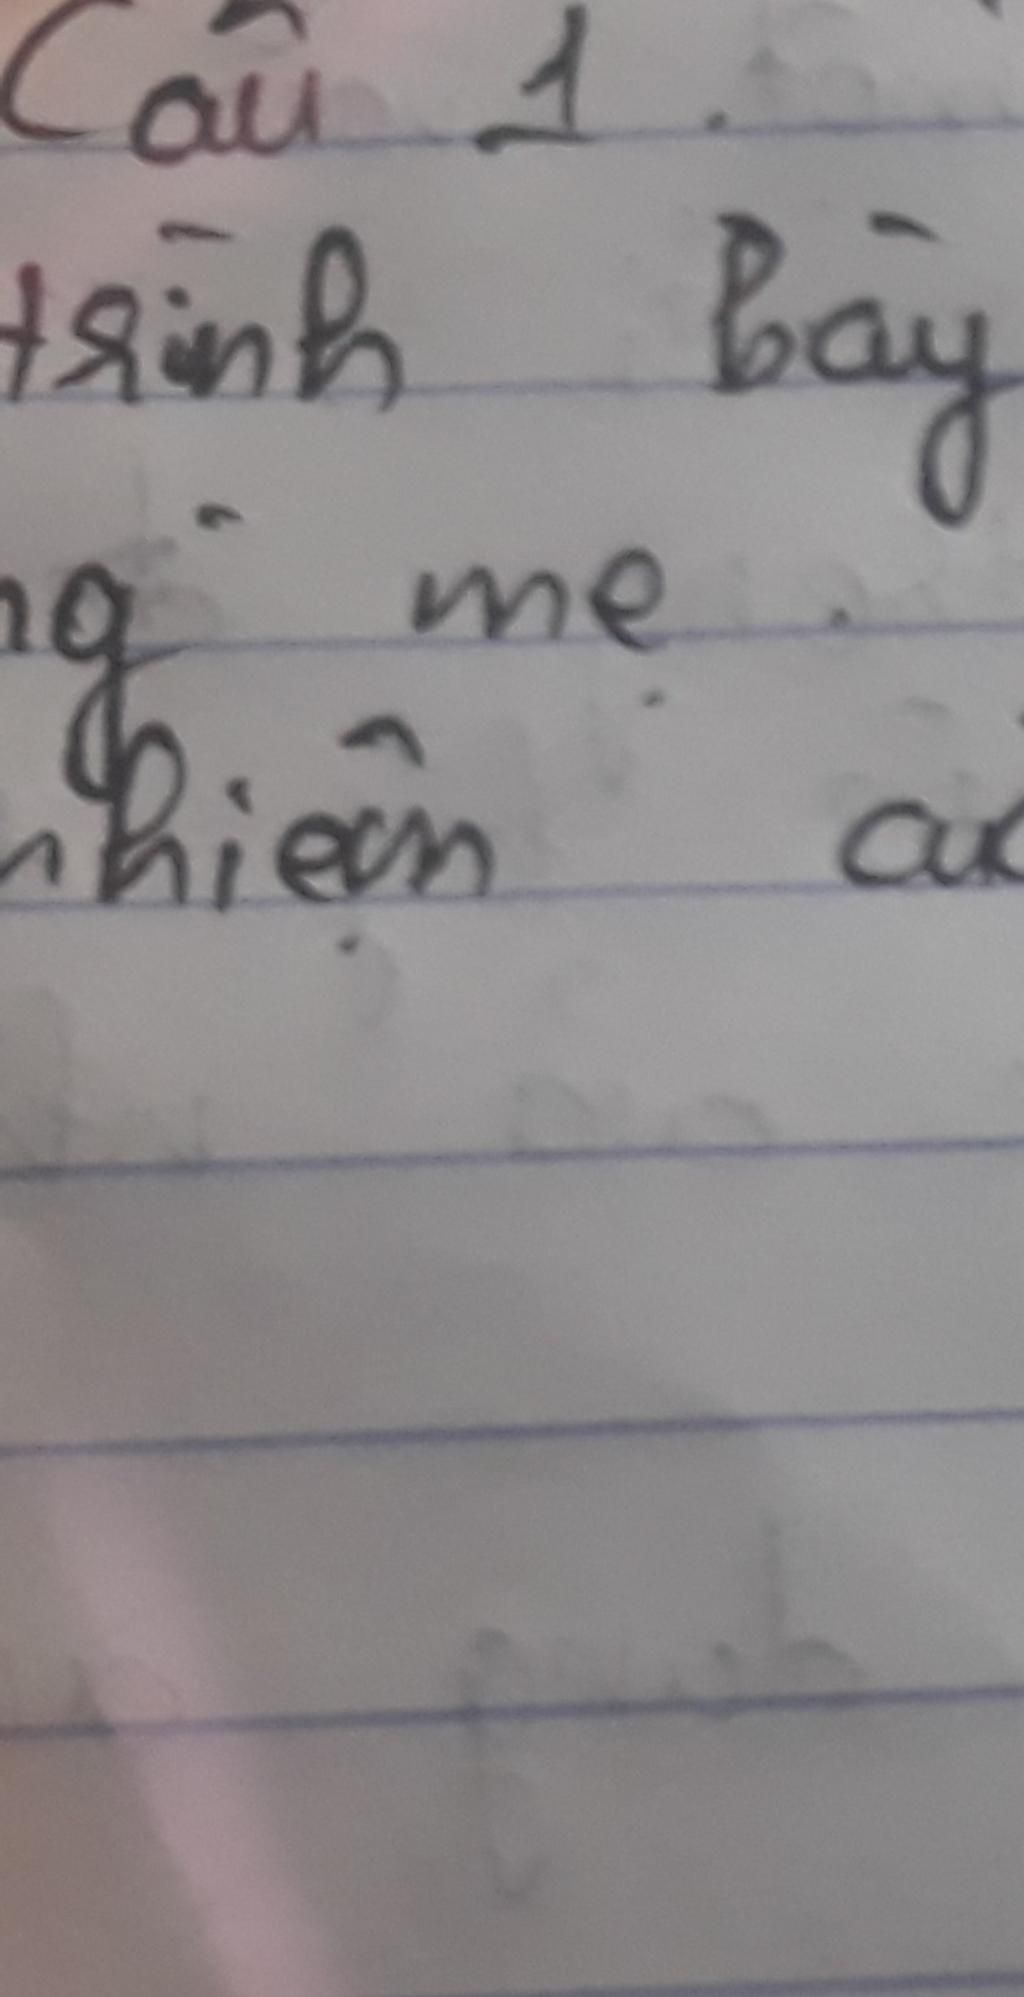 Câu 1.
trình Bày
ng mẹ.
nhiệm